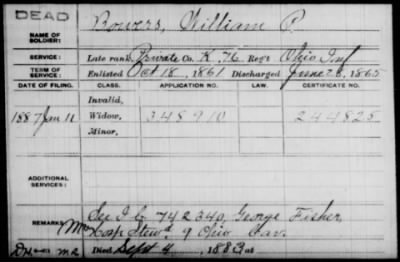 DEAD
Bowers, William P.
NAME OF SOLDIER:
SERVICE: Late rank, Private Co. K, 76 Reg't Ohio Inf
TERM OF SERVICE: Enlisted Oct 18, 1861 Discharged June 23, 1865
DATE OF FILING. CLASS. APPLICATION NO. LAW. CERTIFICATE NO.
Invalid,
1887 Jan 11 Widow, 348910 244825
Minor,
ADDITIONAL SERVICES:
REMARKS: See I C 742340, George Fisher,
Hosp. Stew'd. 9 Ohio Cav.
Died Sept 4, 1883 at